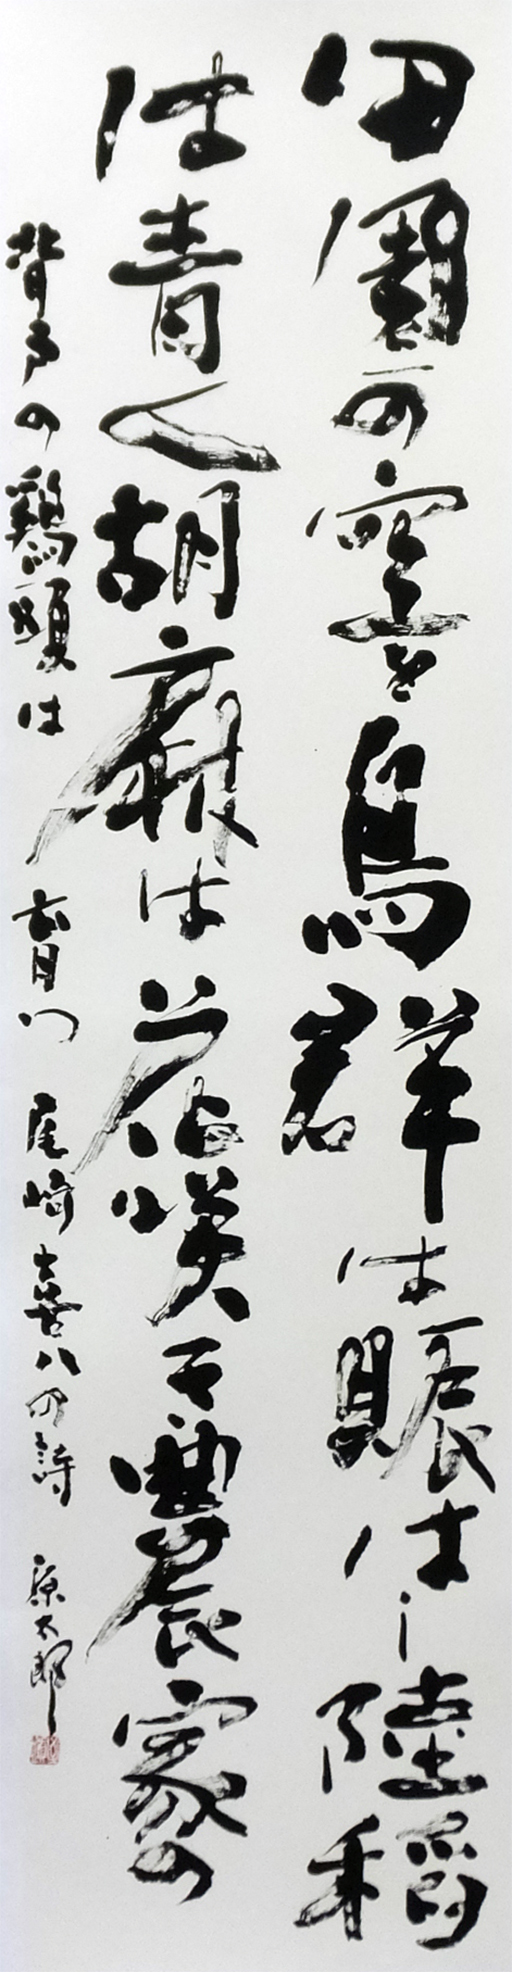 田園の空を鳥群は賑はし陸稲
は青く胡麻は花咲て農家の
背戸の鶏頭は 育つ 尾崎喜八の詩 太郎